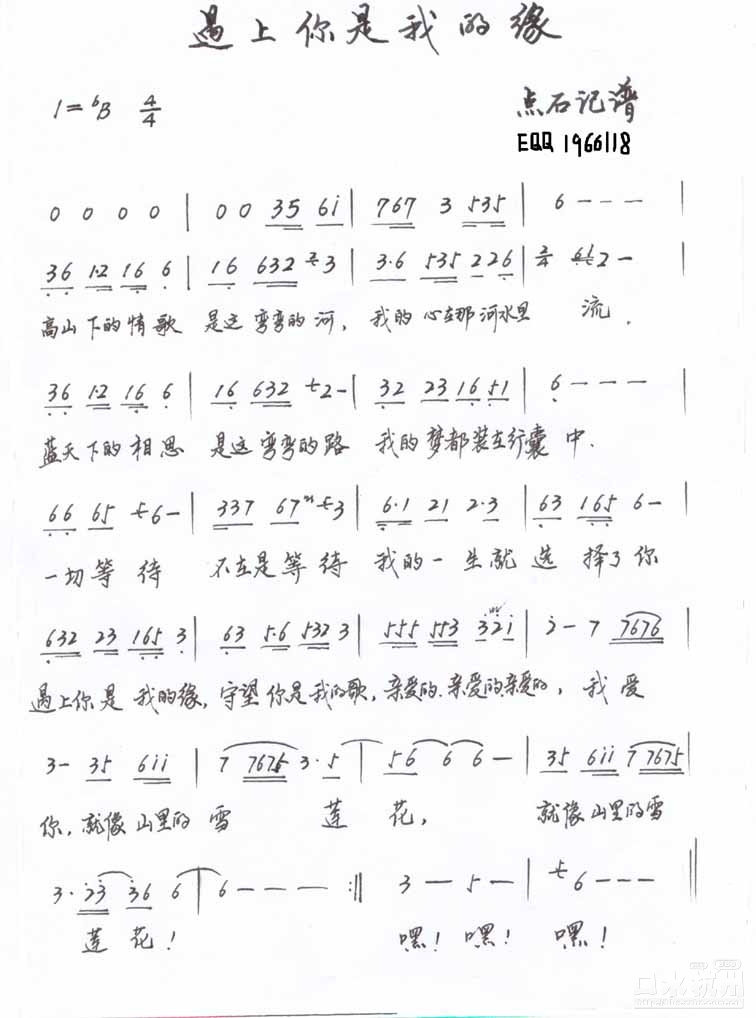 遇上你是我的缘
1=ᵇB 4/4 点石记谱
EQQ 1966118
0 0 0 0 | 0 0 35 6i | 767 3 535 | 6 - - - |
36 1·2 16 6 | 16 632 3 | 3·6 535 226 | 2/4 2 - |
高山下的情歌 是这弯弯的河, 我的心在那河水里 流.
36 1·2 16 6 | 16 632 2 - | 32 23 16 51 | 6 - - - |
蓝天下的相思 是这弯弯的路 我的梦都装在行囊中.
66 65 6 - | 337 67 3 | 6·1 21 2·3 | 63 165 6 - |
一切等待 不在是等待 我的一生就选择了你
632 23 165 3 | 63 5·6 532 3 | 555 553 32i | 2 - 7 7676 |
遇上你是我的缘, 守望你是我的歌, 亲爱的.亲爱的亲爱的, 我爱
3 - 35 6ii | 7 7675 3·5 | 56 6 6 - | 35 6ii 7 7675 |
你, 就像山里的雪 莲 花, 就像山里的雪
3·23 36 6 | 6 - - - :|| 3 — 5 — | 6 - - - ||
莲花! 嘿! 嘿! 嘿!
口水杭州